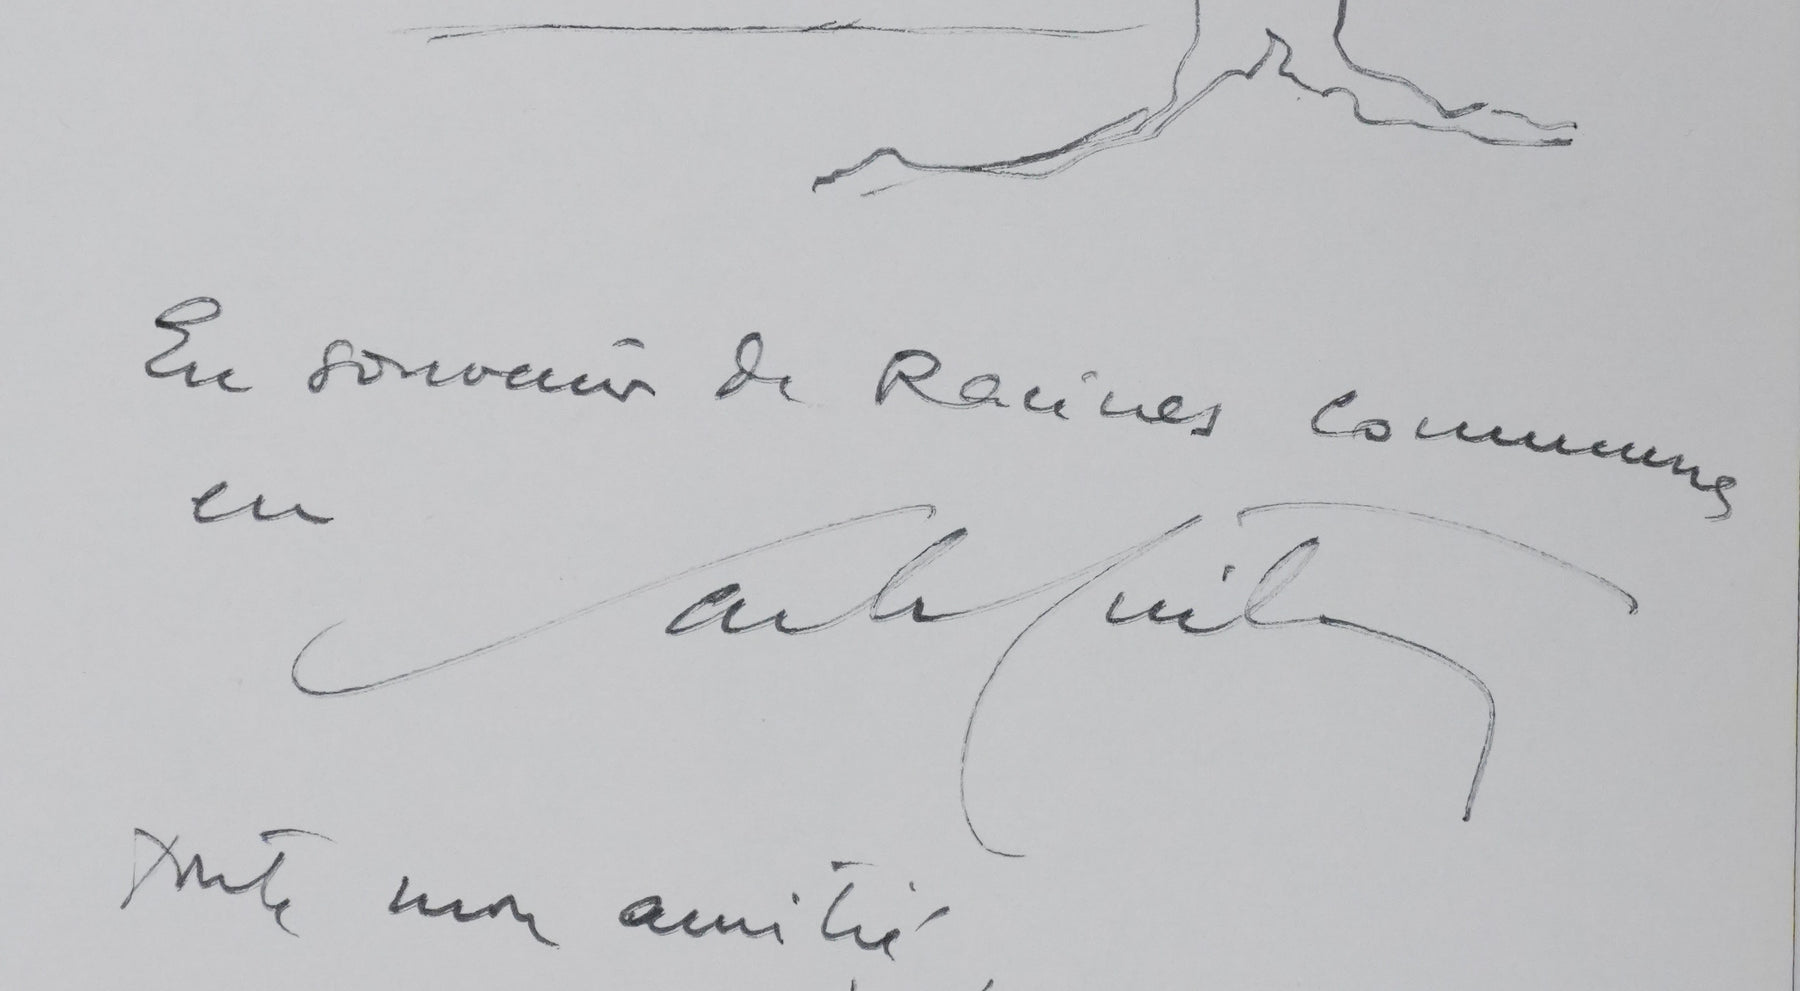 En souvenir de Racines Communes
en
toute mon amitié